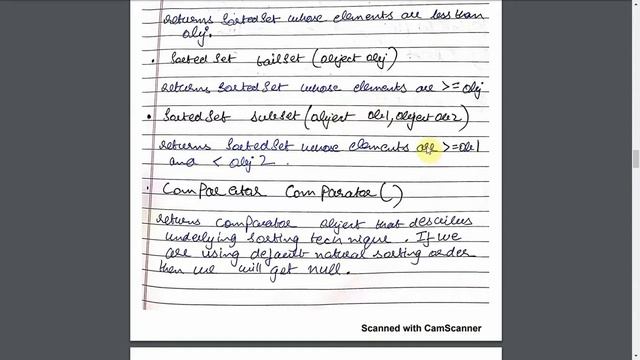 returns SortedSet whose elements are less than
obj.
• Sorted Set tailSet (object obj)
returns SortedSet whose elements are >= obj
• SortedSet subset (object obj1, object obj2)
returns SortedSet whose elements are >=obj1
and < obj2.
• Comparator Comparator()
returns comparator object that describes
underlying sorting technique. If we
are using default natural sorting order
then we will get null.
Scanned with CamScanner